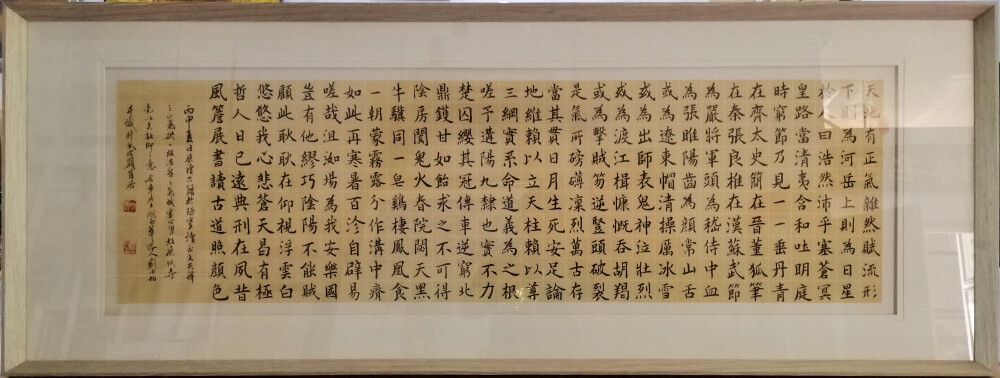 天地有正氣雜然賦流形
下則為河岳上則為日星
於人曰浩然沛乎塞蒼冥
皇路當清夷含和吐明庭
時窮節乃見一一垂丹青
在齊太史簡在晉董狐筆
在秦張良椎在漢蘇武節
為嚴將軍頭為嵇侍中血
為張睢陽齒為顏常山舌
或為遼東帽清操厲冰雪
或為出師表鬼神泣壯烈
或為渡江楫慷慨吞胡羯
或為擊賊笏逆豎頭破裂
是氣所磅礴凜烈萬古存
當其貫日月生死安足論
地維賴以立天柱賴以尊
三綱實系命道義為之根
嗟予遘陽九隸也實不力
楚囚纓其冠傳車送窮北
鼎鑊甘如飴求之不可得
陰房闃鬼火春院閟天黑
牛驥同一皂鷄棲鳳凰食
一朝蒙霧露分作溝中瘠
如此再寒暑百沴自辟易
嗟哉沮洳場為我安樂國
豈有他繆巧陰陽不能賊
顧此耿耿在仰視浮雲白
悠悠我心悲蒼天曷有極
哲人日已遠典刑在夙昔
風簷展書讀古道照顏色
丙申之夏日